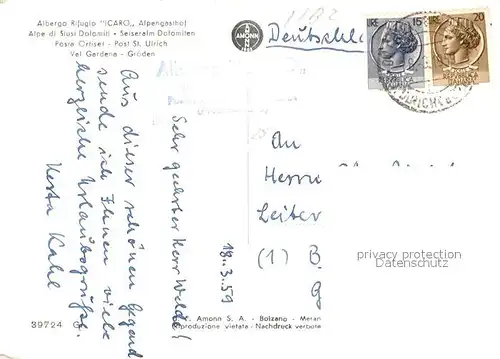 Albergo Rifugio "ICARO„ Alpengasthof
Alpe di Siusi Dolomiti • Seiseralm Dolomiten
Posta Ortisei - Post St. Ulrich
Val Gardena - Gröden
AMONN
Deutschland
LIRE 15
LIRE 20
18.3.59
Sehr geehrter Herr Weld!
Aus dieser schönen Gegend
sende ich Ihnen viele
herzliche Urlaubsgrüße.
Herta Kahl
An
Herrn
Leiter
(1) B
g
privacy protection
Datenschutz
F. Amonn S. A. - Bolzano - Meran
Riproduzione vietata - Nachdruck verboten
39724